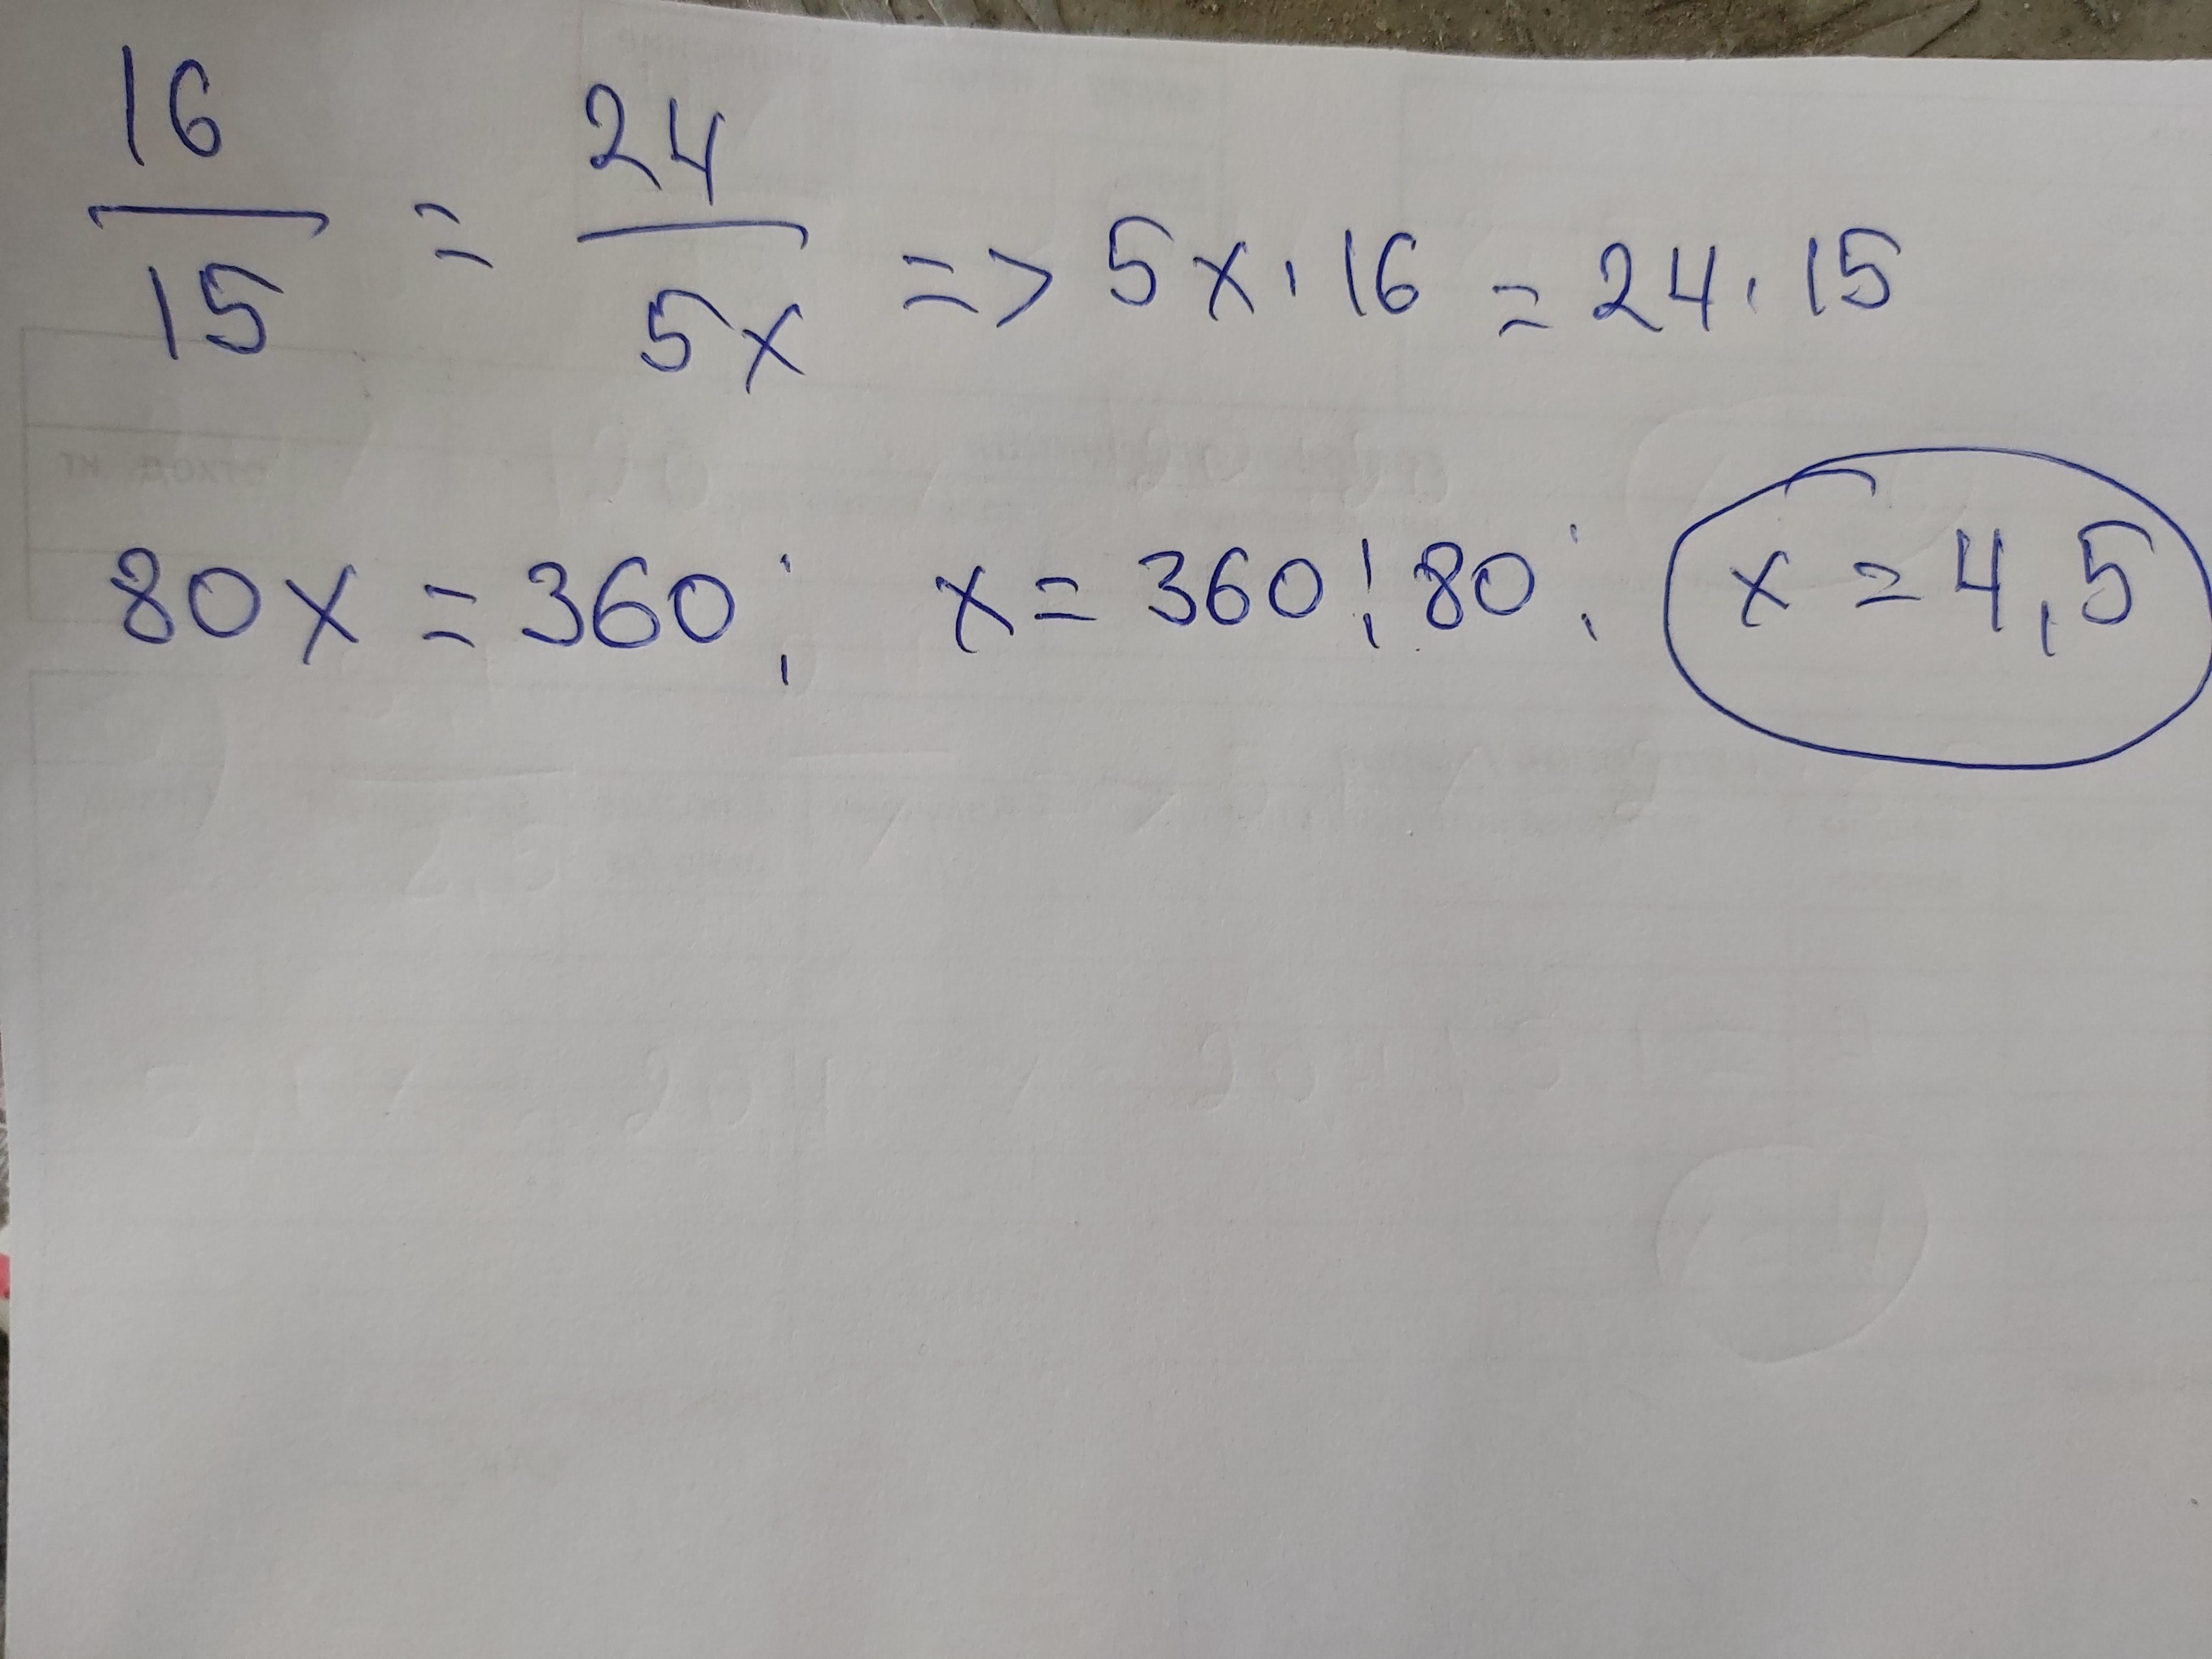 16/15 = 24/5x => 5x · 16 = 24 · 15
80x = 360; x = 360 : 80; x = 4,5